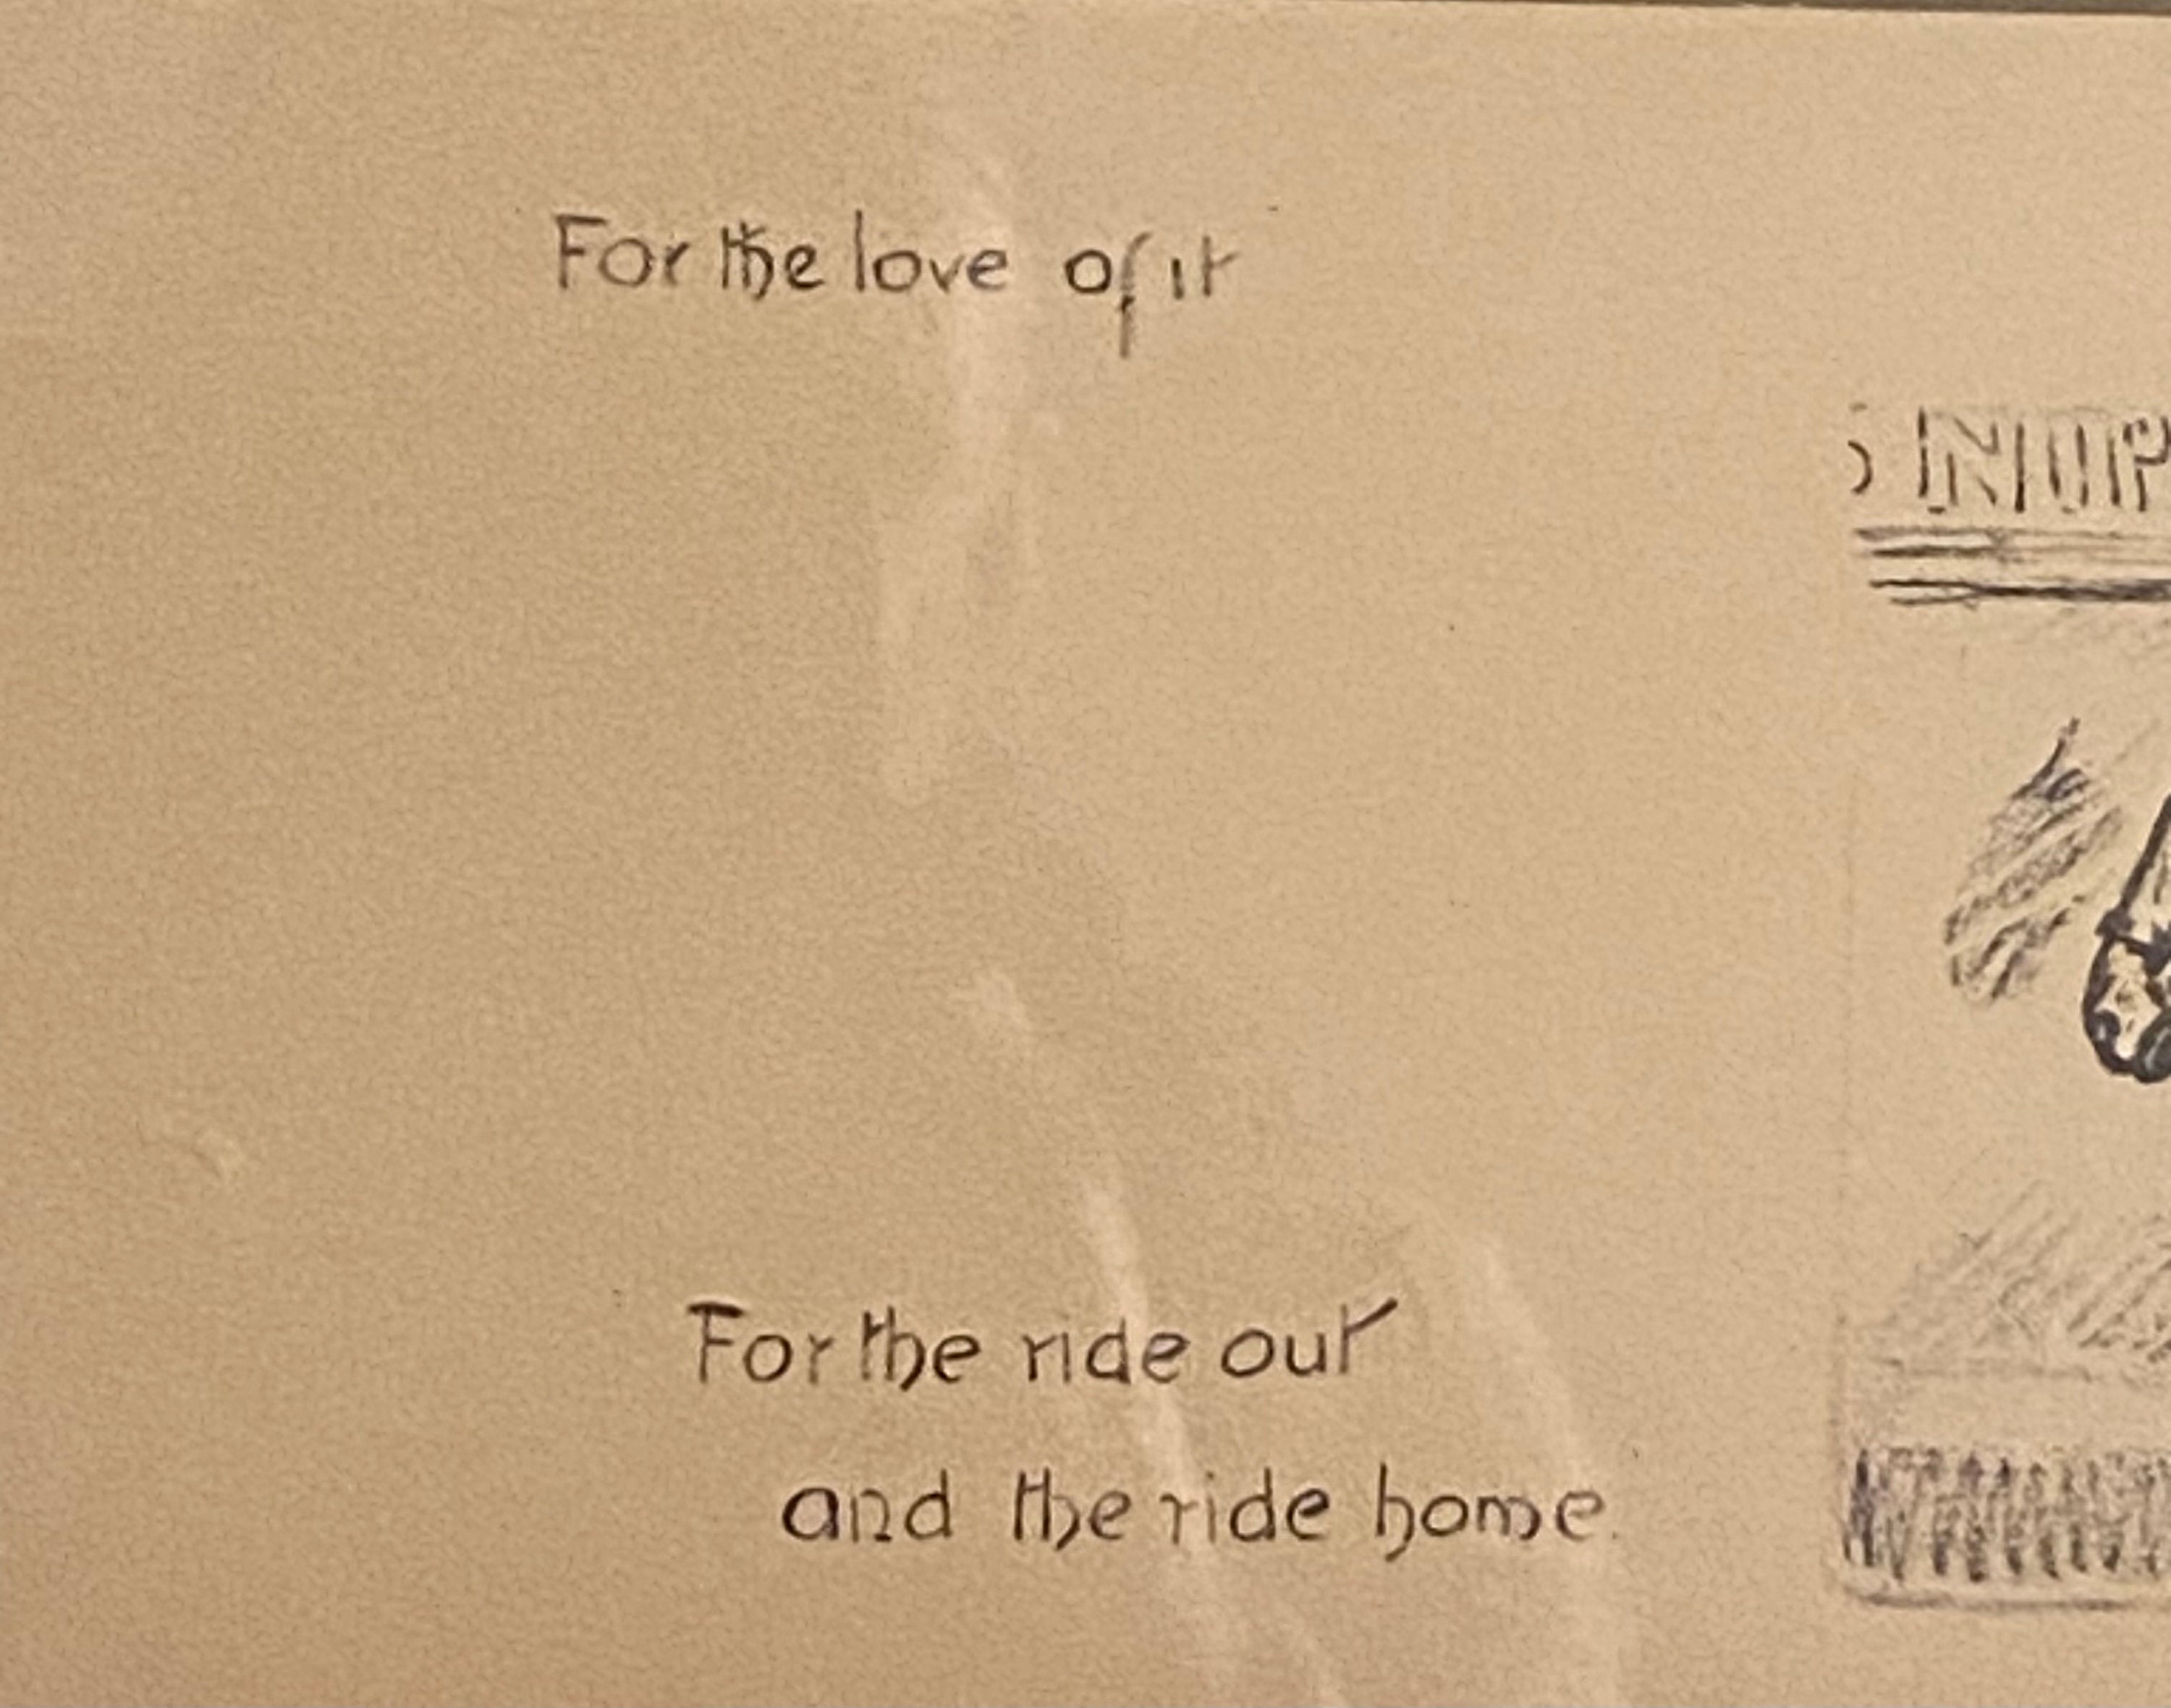 For the love of it
For the ride out
and the ride home.